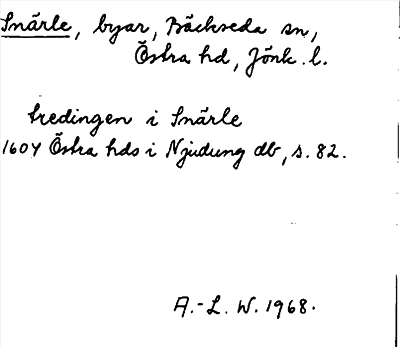 Snärle, byar, Bäckseda sn,
Östra hd, Jönk. l.
tredingen i Snärle
1604 Östra hds i Njudung db, s. 82.
A.-L. W. 1968.